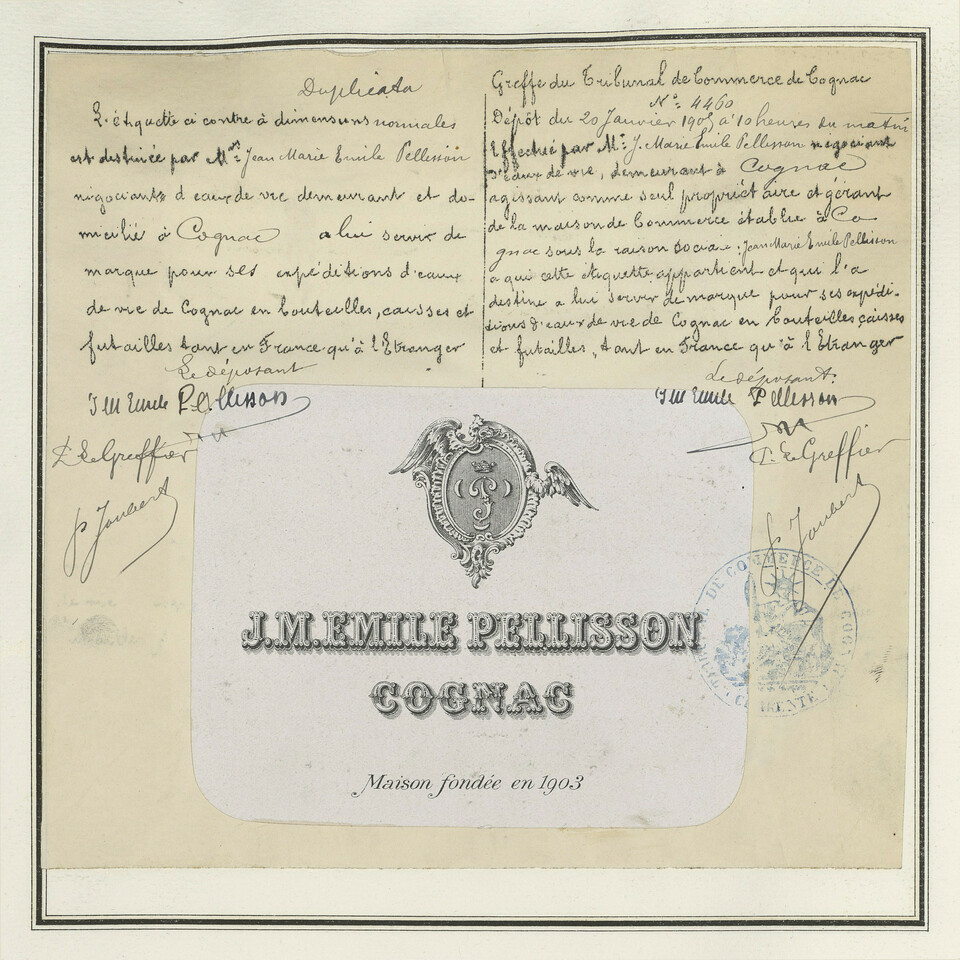 Duplicata
L'étiquette ci contre à dimensions normales
est destinée par Mr Jean Marie Emile Pellisson
négociant d'eaux de vie demeurant et do-
micilié à Cognac a lui servir de
marque pour ses expéditions d'eaux
de vie de Cognac en bouteilles, caisses et
futailles tant en France qu'à l'Etranger
Le déposant
J M Emile Pellisson
P. Le Greffier
P Joubert
Greffe du Tribunal de Commerce de Cognac
No: 4460
Dépôt du 20 Janvier 1905 à 10 heures du matin
Effectué par Mr. J. Marie Emile Pellisson négociant
d'eaux de vie, demeurant à Cognac
agissant comme seul propriétaire et gérant
de la maison de Commerce établie à Co
gnac sous la raison sociale: Jean Marie Emile Pellisson
a qui cette étiquette appartient et qui l'a
destine a lui servir de marque pour ses expédi-
tions d'eaux de vie de Cognac en bouteilles, caisses
et futailles, tant en France qu'à l'Etranger
Le déposant.
J M Emile Pellisson
P. Le Greffier
P Joubert
J.M. EMILE PELLISSON
COGNAC
Maison fondée en 1903
DE COMMERCE DE COGNAC
CHARENTE